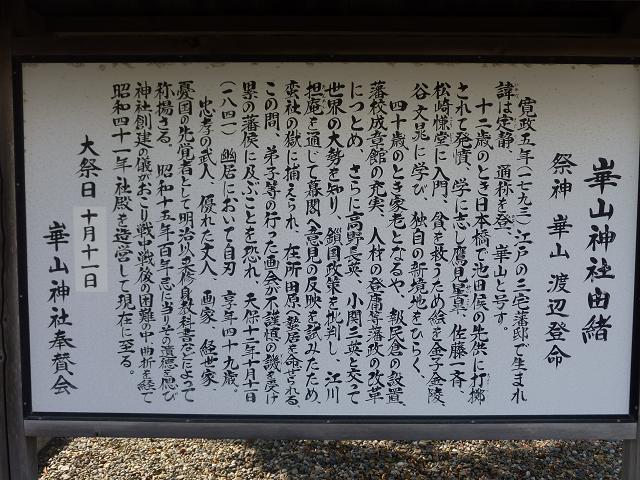 崋山神社由緒
祭神 崋山 渡辺登命
寛政五年(一七九三)江戸の三宅藩邸で生まれ
諱は定静、通称を登、崋山と号す。
十二歳のとき日本橋で池田侯の先供に打擲
されて発憤、学に志し鷹見星皐、佐藤一斉、
松崎慊堂に入門、貧を救うため絵を金子金陵、
谷文晁に学び、独自の新境地をひらく、
四十歳のとき家老となるや、報民倉の設置、
藩校成章館の充実、人材の登庸等藩政の改革
につとめ、さらに高野長英、小関三英と交って
世界の大勢を知り、鎖国政策を批判し、江川
担庵を通じて幕閣へ意見の反映を試みたため、
蛮社の獄に捕えられ、在所田原に蟄居を命ぜられる、
この間、弟子等の行った画会が不謹慎の譏を受け
累の藩侯に及ぶことを恐れ、天保十二年十月十一日
(一八四一)幽居において自刃 享年四十九歳。
忠孝の武人、優れた文人、画家、経世家、
憂国の先覚者として明治以来修身教科書などによって
称揚さる、昭和十五年百年忌に当りその遺徳を偲び
神社創建の儀がおこり戦中戦後の困難の中曲折を経て
昭和四十一年社殿を造営して現在に至る。
大祭日 十月十一日
崋山神社奉賛会